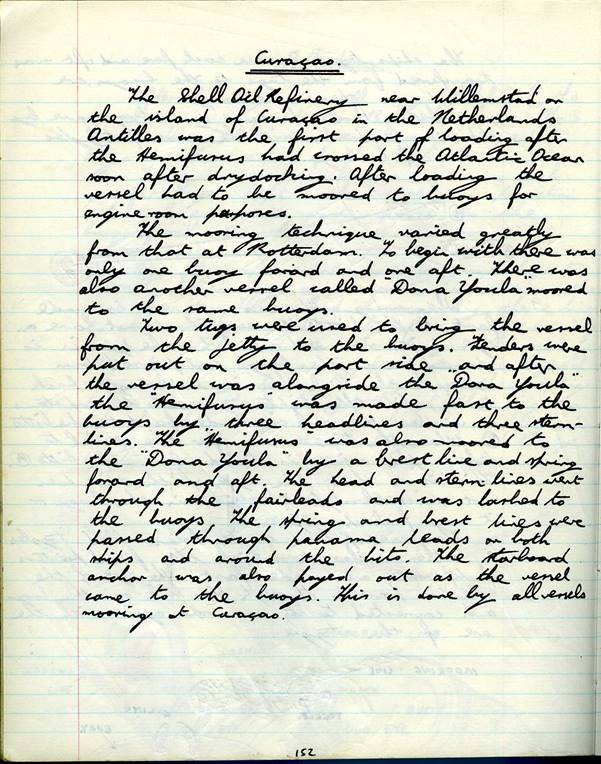 Curaçao.
The Shell Oil Refinery near Willemstad on
the island of Curaçao in the Netherlands
Antilles was the first port of loading after
the Hemifusus had crossed the Atlantic Ocean
soon after drydocking. After loading the
vessel had to be moored to buoys for
engine room purposes.
The mooring technique varied greatly
from that at Rotterdam. To begin with there was
only one buoy forard and one aft. There was
also another vessel called "Dona Youla" moored
to the same buoys.
Two tugs were used to bring the vessel
from the jetty to the buoys. Fenders were
put out on the port side and after
the vessel was alongside the "Dona Youla"
the "Hemifusus" was made fast to the
buoys by three headlines and three stern-
lines. The "Hemifusus" was also moored to
the "Dona Youla" by a brest line and spring
forard and aft. The head and stern lines went
through the fairleads and was lashed to
the buoys. The spring and brest lines were
passed through panama leads on both
ships and around the bits. The starboard
anchor was also payed out as the vessel
came to the buoys. This is done by all vessels
mooring at Curaçao.
152